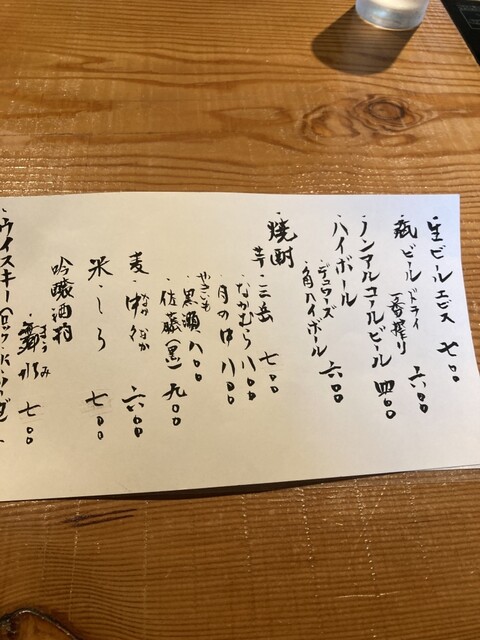 生ビール エビス 七〇〇
瓶ビール ドライ
一番搾り 六〇〇
ノンアルコールビール 四〇〇
ハイボール
デュワーズ
角ハイボール 六〇〇
・焼酎
芋・三岳 七〇〇
・なかむら 八〇〇
・月の中 八〇〇
やきいも
・黒瀬 八〇〇
・佐藤(黒) 九〇〇
麦・中々 六〇〇
なかなか
米・しろ 七〇〇
吟醸酒粕
七〇〇
・ウイスキー(ロック